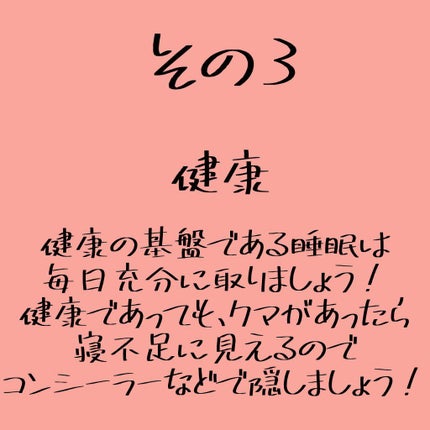 その3
健康
健康の基盤である睡眠は
毎日充分に取りましょう!
健康であっても、クマがあったら
寝不足に見えるので
コンシーラーなどで隠しましょう!